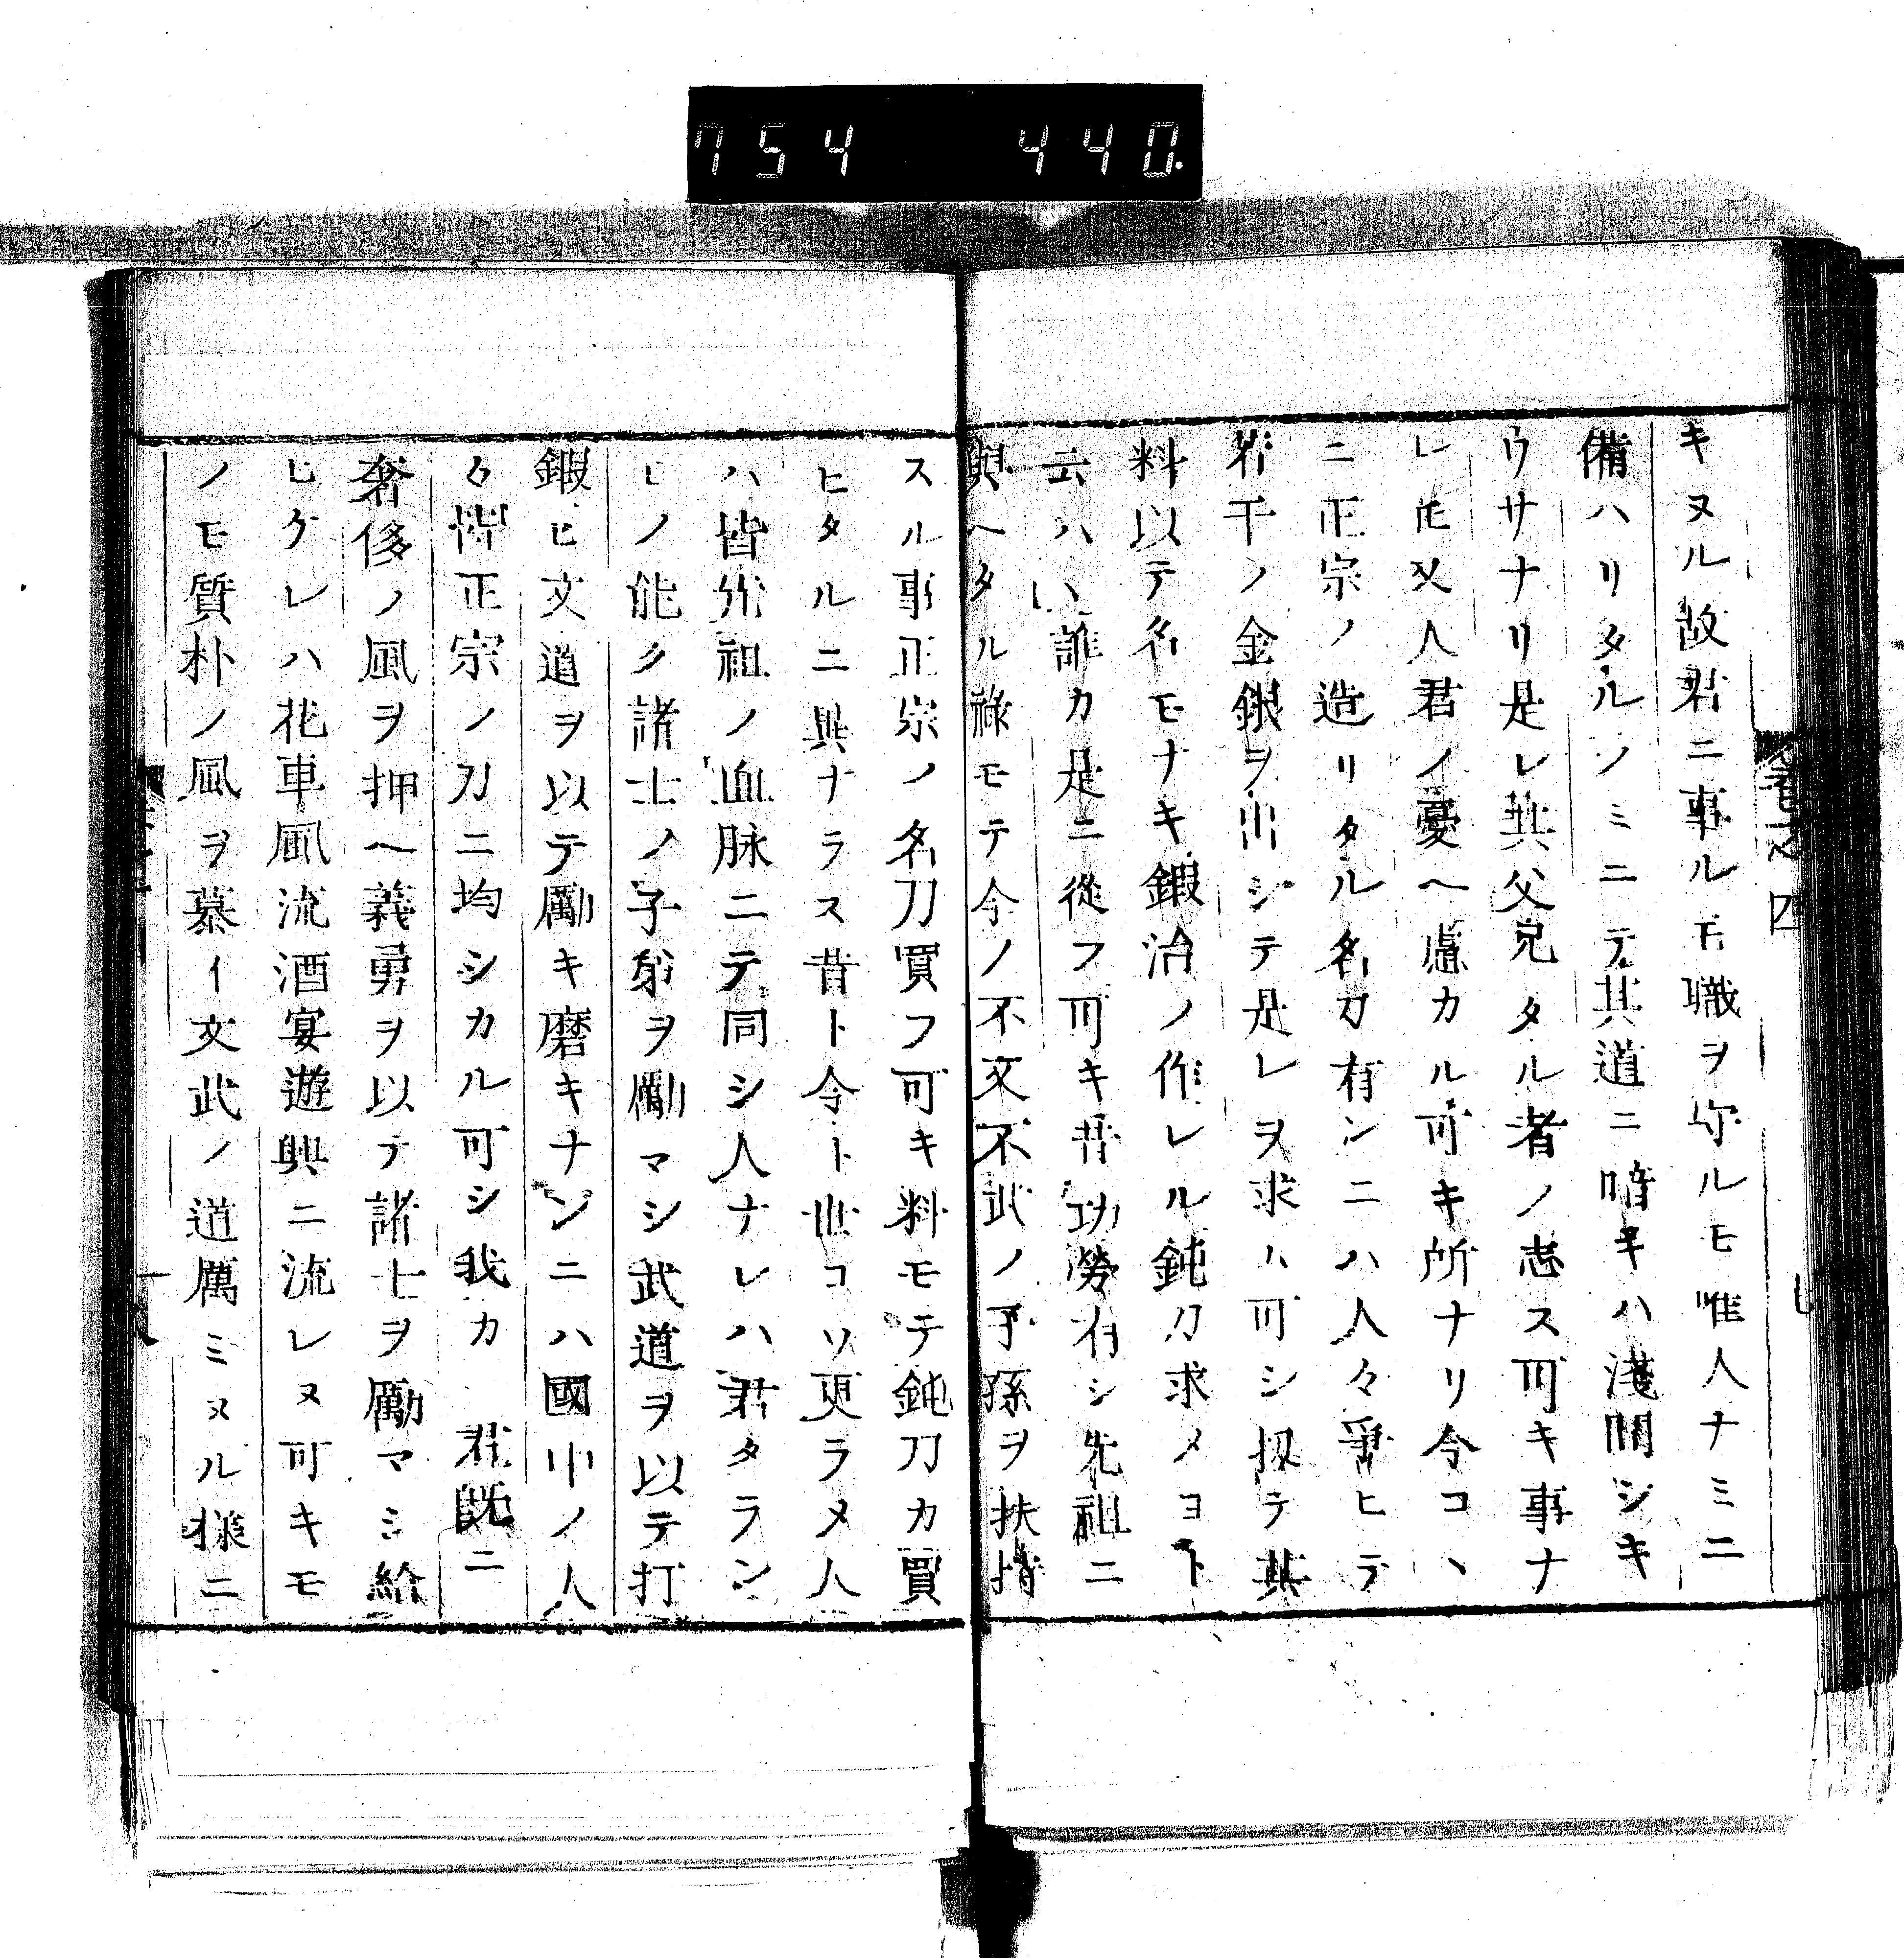 754 440.
キヌル故君ニ事ルモ職ヲ守ルモ唯人ナミニ
備ハリタルノミニテ其道ニ暗キハ淺間シキ
ウサナリ是レ其父兄タル者ノ志ス可キ事ナ
レ𪜈又人君ノ憂ヘ慮カル可キ所ナリ今コヽ
ニ正宗ノ造リタル名刀有ンニハ人々爭ヒテ
若干ノ金銀ヲ出シテ是レヲ求ハ可シ扨テ其
料以テ名モナキ鍜冶ノ作レル鈍刀求メヨト
云ハヽ誰カ是ニ從フ可キ昔功勞有シ先祖ニ
與ヘタル祿モテ今ノ不文不武ノ子孫ヲ扶持
スル事正宗ノ名刀買フ可キ料モテ鈍刀カ買
ヒタルニ異ナラス昔ト今ト世コソ更ラメ人
ハ皆先祖ノ血脉ニテ同シ人ナレハ君タラン
ヒノ能ク諸士ノ子弟ヲ勵マシ武道ヲ以テ打
鍜ヒ文道ヲ以テ勵キ磨キナンニハ國中ノ人
々皆正宗ノ刀ニ均シカル可シ我カ 君既ニ
奢侈ノ風ヲ押ヘ義勇ヲ以テ諸士ヲ勵マミ給
ヒケレハ花車風流酒宴遊興ニ流レヌ可キモ
ノモ質朴ノ風ヲ慕イ文武ノ道厲ミヌル樣ニ